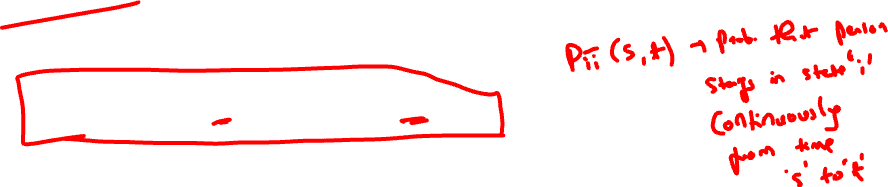 P_ii (s,t) → prob. that person
stays in state "i"
continuously
from time
's' to 't'